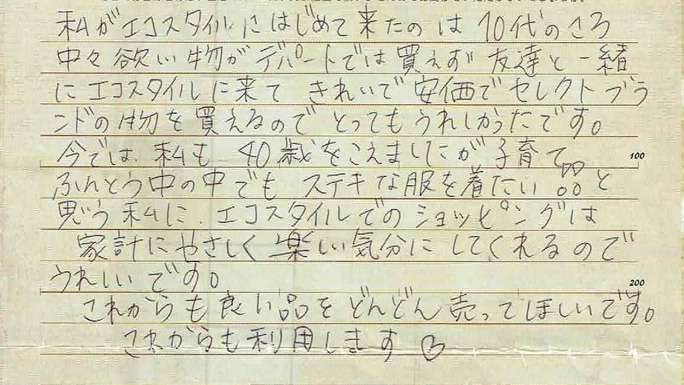 私がエコスタイルにはじめて来たのは10代のころ
中々欲い物がデパートでは買えず友達と一緒
にエコスタイルに来てきれいで安価でセレクトブラ
ンドの物を買えるのでとってもうれしかったです。
今では私も40歳をこえましたが子育て
100
ふんとう中の中でもステキな服を着たい。。と
思う私に、エコスタイルでのショッピングは
家計にやさしく楽しい気分にしてくれるので
うれしいです。
200
これからも良い品をどんどん売ってほしいです。
これからも利用します